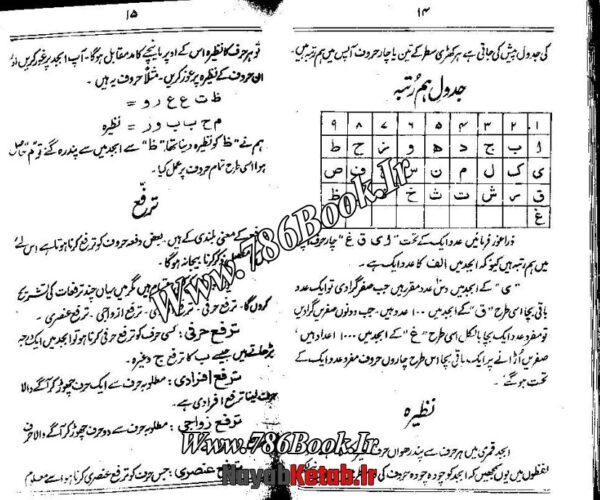 ۱۴
کی جدول پیش کی جاتی ہے ہر کھڑی سطر کے تین یا چار حروف آپس میں ہم رتبہ ہیں۔
جدول ہم رُتبہ
۱ ۲ ۳ ۴ ۵ ۶ ۷ ۸ ۹
ا ب ج د ھ و ز ح ط
ی ک ل م ن س ف ص
ق ر ش ت ث خ ظ
غ
ذرا غور فرمائیں عدد ایک کے تحت "ا ی ق غ" چار حرف
میں ہم رتبہ ہیں کیونکہ ابجد میں الف کا عدد ایک ہے۔
"ی" کے ابجد میں دس عدد مقرر ہیں جب صفر گرا دی تو ایک عدد
باقی بچا اسی طرح "ق" کے ابجد میں ۱۰۰ عدد ہیں۔ جب دونوں صفریں گرا دیں
تو مفرد عدد ایک بچا بالکل اسی طرح "غ" کے ابجد میں ۱۰۰۰ اعداد ہیں،
صفریں اُڑانے پر ایک باقی بچا اس طرح چاروں حروف مفرد عدد ایک کے
تحت ہو گئے۔
نظیرہ
ابجد قمری میں ہر حرف سے پندرھواں حرف
لفظوں میں یوں سمجھیں کہ ابجد کو چودہ چودہ حروف کی
۱۵
تو ہر حرف کا نظیرہ اس کے اوپر یا نیچے کا مد مقابل ہوگا۔ آپ ابجد پر غور کریں اور
ان حروف کے نظیرہ پر غور کریں۔ مثلاً حروف یہ ہیں۔
ظ ت ع ع ر و =
م ح ب ب و ر = نظیرہ
ہم نے "ظ" کو نظیرہ دینا تھا "ظ" سے ابجد میں سے پندرہ گئے تو "م" حاصل
ہوا اسی طرح تمام حروف پر عمل کیا۔
ترفع
کے معنی بلندی کے ہیں۔ بعض دفعہ حروف کو ترفع کرنا ہوتا ہے اس لئے
کرنا بیجا نہ ہوگا۔
ہیں مگر میں یہاں چند ترفعات کی تشریح
کروں گا۔ ترفع حرفی، ترفع ازواجی، ترفع عنصری۔
ترفع حرفی: کسی حرف کو ترفع حرفی کرنا ہو تو ابجد میں ایک درجہ
بڑھاتے ہیں جیسے ب کا ترفع ج وغیرہ۔
ترفع افرادی: مطلوبہ حرف سے ایک حرف چھوڑ کر آگے والا
حرف لینا ترفع افرادی ہے۔
ترفع زواجی: مطلوبہ حرف سے دو حرف چھوڑ کر آگے والا حرف
ترفع عنصری: جس حرف کو ترفع عنصری کرنا ہو اسے معلوم
Www.786Book.Ir
Www.786Book.Ir
Www.786Book.Ir
NayabKetab.Ir